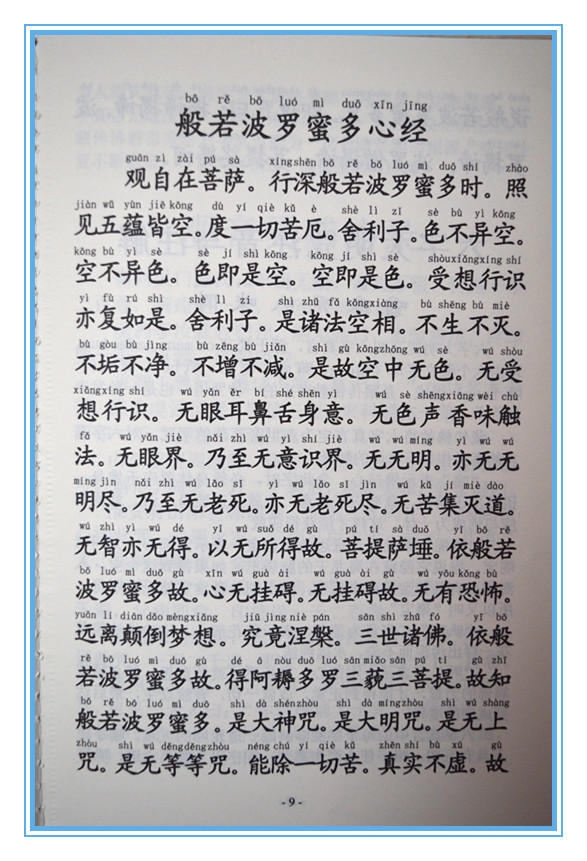 bō rě bō luó mì duō xīn jīng
般若波罗蜜多心经
guān zì zài pú sà xíng shēn bō rě bō luó mì duō shí zhào
观自在菩萨。行深般若波罗蜜多时。照
jiàn wǔ yùn jiē kōng dù yí qiè kǔ è shè lì zǐ sè bù yì kōng
见五蕴皆空。度一切苦厄。舍利子。色不异空。
kōng bù yì sè sè jí shì kōng kōng jí shì sè shòu xiǎng xíng shí
空不异色。色即是空。空即是色。受想行识
yì fù rú shì shè lì zǐ shì zhū fǎ kōng xiàng bù shēng bù miè
亦复如是。舍利子。是诸法空相。不生不灭。
bù gòu bù jìng bù zēng bù jiǎn shì gù kōng zhōng wú sè wú shòu
不垢不净。不增不减。是故空中无色。无受
xiǎng xíng shí wú yǎn ěr bí shé shēn yì wú sè shēng xiāng wèi chù
想行识。无眼耳鼻舌身意。无色声香味触
fǎ wú yǎn jiè nǎi zhì wú yì shí jiè wú wú míng yì wú wú
法。无眼界。乃至无意识界。无无明。亦无无
míng jìn nǎi zhì wú lǎo sǐ yì wú lǎo sǐ jìn wú kǔ jí miè dào
明尽。乃至无老死。亦无老死尽。无苦集灭道。
wú zhì yì wú dé yǐ wú suǒ dé gù pú tí sà duǒ yī bō rě
无智亦无得。以无所得故。菩提萨埵。依般若
bō luó mì duō gù xīn wú guà ài wú guà ài gù wú yǒu kǒng bù
波罗蜜多故。心无挂碍。无挂碍故。无有恐怖。
yuǎn lí diān dǎo mèng xiǎng jiū jìng niè pán sān shì zhū fó yī bō
远离颠倒梦想。究竟涅槃。三世诸佛。依般
rě bō luó mì duō gù dé ā nòu duō luó sān miǎo sān pú tí gù zhī
若波罗蜜多故。得阿耨多罗三藐三菩提。故知
bō rě bō luó mì duō shì dà shén zhòu shì dà míng zhòu shì wú shàng
般若波罗蜜多。是大神咒。是大明咒。是无上
zhòu shì wú děng děng zhòu néng chú yí qiè kǔ zhēn shí bù xū gù
咒。是无等等咒。能除一切苦。真实不虚。故
- 9 -